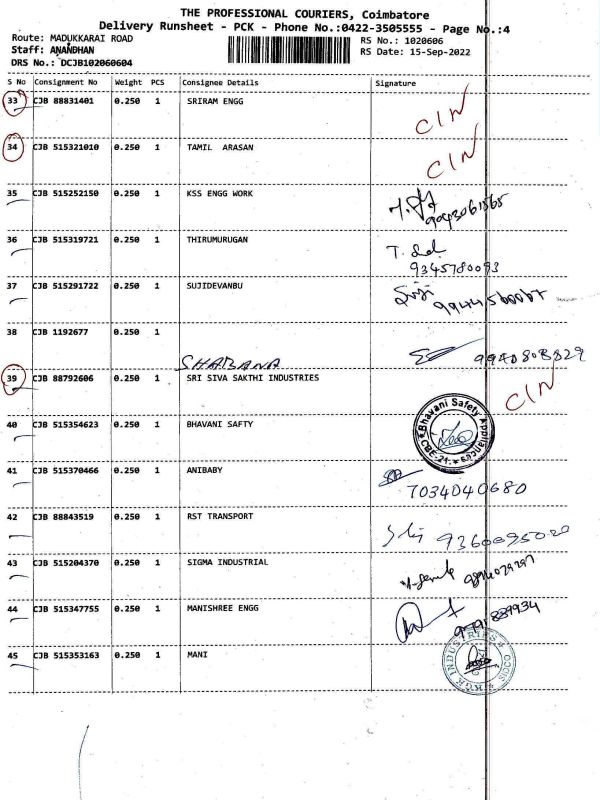 THE PROFESSIONAL COURIERS, Coimbatore
Delivery Runsheet - PCK - Phone No.:0422-3505555 - Page No.:4
Route: MADUKKARAI ROAD
RS No.: 1020606
Staff: ANANDHAN
RS Date: 15-Sep-2022
DRS No.: DCJB102060604
S No Consignment No Weight PCS Consignee Details Signature
33 CJB 88831401 0.250 1 SRIRAM ENGG CIN
34 CJB 515321010 0.250 1 TAMIL ARASAN CIN
35 CJB 515252150 0.250 1 KSS ENGG WORK
36 CJB 515319721 0.250 1 THIRUMURUGAN
9345780093
37 CJB 515291722 0.250 1 SUJIDEVANBU
38 CJB 1192677 0.250 1
SHABANA
39 CJB 88792606 0.250 1 SRI SIVA SAKTHI INDUSTRIES CIN
40 CJB 515354623 0.250 1 BHAVANI SAFTY
Bhavani Safety Appliances
CBE-21.
41 CJB 515370466 0.250 1 ANIBABY
7034040680
42 CJB 88843519 0.250 1 RST TRANSPORT
43 CJB 515204370 0.250 1 SIGMA INDUSTRIAL
44 CJB 515347755 0.250 1 MANISHREE ENGG
45 CJB 515353163 0.250 1 MANI
KGK INDUSTRIES
SIDCO